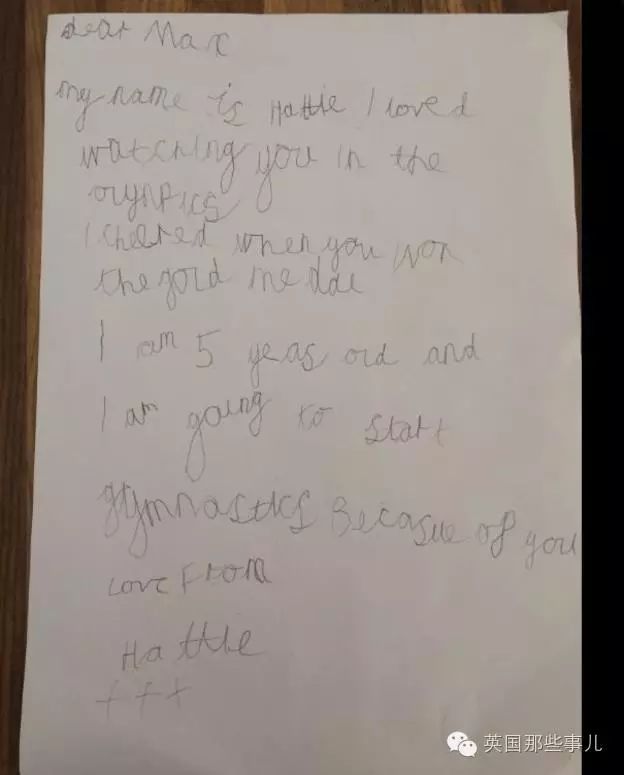 dear Max
my name is Hattie I loved
watching you in the
olynpics
I cheered when you won
the gold medal
I am 5 yeas old and
I am going to start
gymnastics Becasue of you
love From
Hattie
+++
英国那些事儿